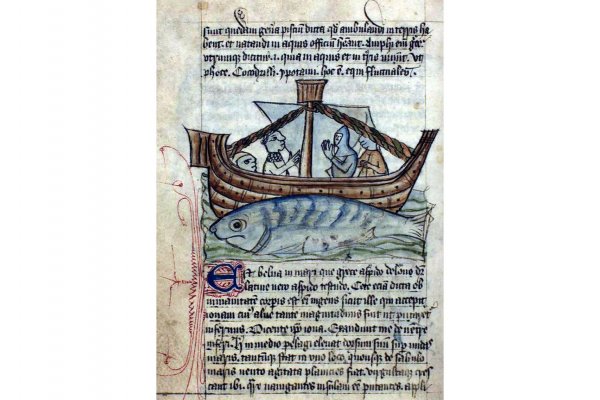 sunt quedam gen̄a pisciū dicta qd ambulandi in terris ha
bent. et natandi in aquis officiū hn̄ant. Amphi em̄ grece
utrumque dicitur. i. quia in aquis et in t̄ris uiuūt. ut
phoce. Cocodrilli. ypotami. hoc ē. equi fluctuales.
Est belua in mari que grece aspido delone dr̄
latine vero aspido testudo. Cete eciā dicta ob
inmanitatē corpis est em̄ ingens sicut ille qui excepit
ionam cui' alue tante magnitudinis fuit ut putaret
infernus. Dicente ip̄o iona. Exaudiuit me de uentre
inferi. H' in medio pelagi eleuat dorsum suū sup undas
maris. tantūque stat in uno loco. quousque de sabulo
maris vento agitata planicies fiat. virgultaque cres
cant ibi. Qr̄ navigantes insulam eē putantes. appli